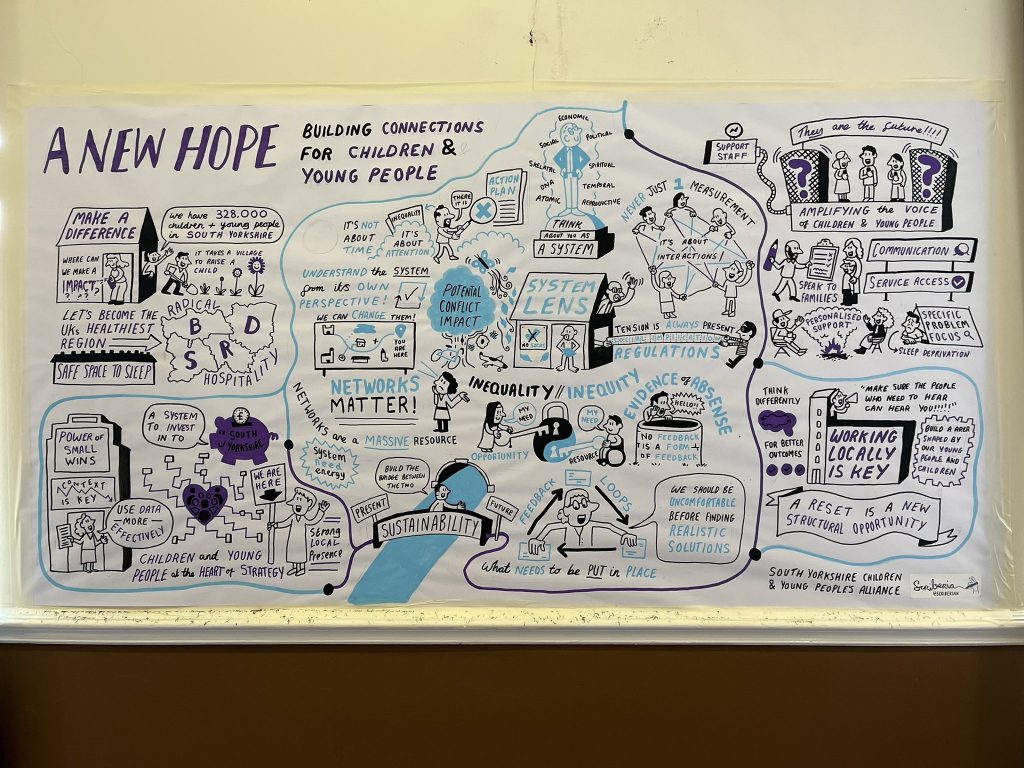 A NEW HOPE
BUILDING CONNECTIONS
FOR CHILDREN &
YOUNG PEOPLE
MAKE A
DIFFERENCE
WHERE CAN
WE MAKE A
IMPACT?
????
We have 328,000
children + young people
in SOUTH YORKSHIRE
IT TAKES A VILLAGE
TO RAISE A
CHILD
LET'S BECOME THE
UKs HEALTHIEST
REGION
SAFE SPACE TO SLEEP
RADICAL
B
D
S
R
HOSPITALITY
POWER OF
SMALL
WINS
CONTEXT
IS KEY
USE DATA
MORE
EFFECTIVELY
A SYSTEM
TO INVEST
IN TO
SOUTH
YORKSHIRE
WE ARE
HERE
Strong
LOCAL
Presence
CHILDREN and YOUNG
PEOPLE at the HEART of STRATEGY
IT'S NOT
ABOUT
TIME
INEQUALITY
IT'S
ABOUT
ATTENTION
THERE
IT IS
ACTION
PLAN
UNDERSTAND the SYSTEM
from it's OWN
PERSPECTIVE!
WE CAN CHANGE THEM!
YOU ARE
HERE
NETWORKS
MATTER!
NETWORKS are a MASSIVE RESOURCE
POTENTIAL
CONFLICT
IMPACT
ECONOMIC
SOCIAL
POLITICAL
SKELATAL
SPIRITUAL
DNA
TEMPORAL
ATOMIC
REPRODUCTIVE
THINK
ABOUT YOU AS
A SYSTEM
SYSTEM
LENS
NO SOCKS
NEVER JUST 1 MEASUREMENT
IT'S ABOUT
INTERACTIONS!
TENSION IS ALWAYS PRESENT
REGULATIONS
INEQUALITY // INEQUITY
MY
NEED
MY
NEED
OPPORTUNITY
RESOURCE
EVIDENCE of ABSENSE
HELLO!!
NO FEEDBACK
IS A FORM
of
FEEDBACK
System
need
energy
BUILD THE
BRIDGE BETWEEN
THE TWO
PRESENT
FUTURE
SUSTAINABILITY
FEEDBACK LOOPS
WE SHOULD BE
UNCOMFORTABLE
BEFORE FINDING
REALISTIC
SOLUTIONS
What NEEDS to be PUT in PLACE
SUPPORT
STAFF
They are the future!!!!
?
?
AMPLIFYING the VOICE
of CHILDREN & YOUNG PEOPLE
SPEAK TO
FAMILIES
COMMUNICATION
SERVICE ACCESS
PERSONALISED
SUPPORT
SPECIFIC
PROBLEM
FOCUS
SLEEP DEPRIVATION
THINK
DIFFERENTLY
FOR BETTER
OUTCOMES
"MAKE SURE THE PEOPLE
WHO NEED TO HEAR
CAN HEAR YOU!!!!!"
WORKING
LOCALLY
IS KEY
BUILD A AREA
SHAPED BY
OUR YOUNG
PEOPLE AND
CHILDREN
A RESET IS A NEW
STRUCTURAL OPPORTUNITY
SOUTH YORKSHIRE CHILDREN
& YOUNG PEOPLE'S ALLIANCE
Scriberia
@SCRIBERIAN